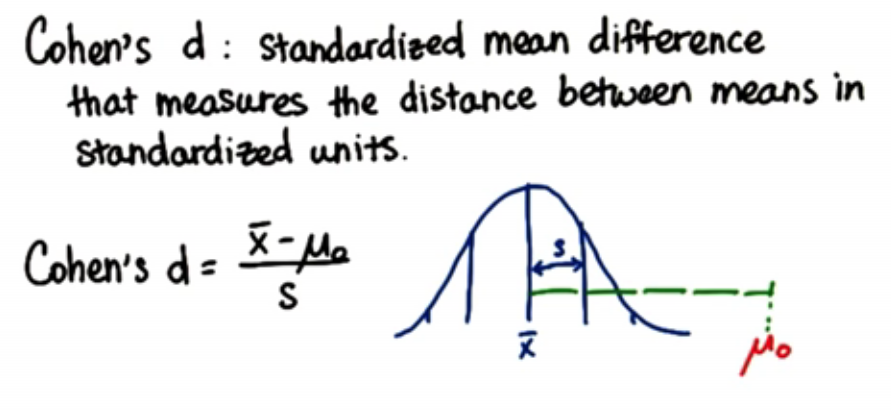 Cohen's d : standardized mean difference
that measures the distance between means in
standardized units.
Cohen's d = x̄ - μ₀ / s
s
x̄
μ₀